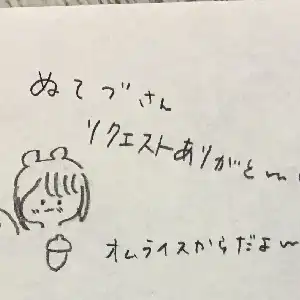 ぬてづさん
リクエストありがと〜
オムライスからだよ〜